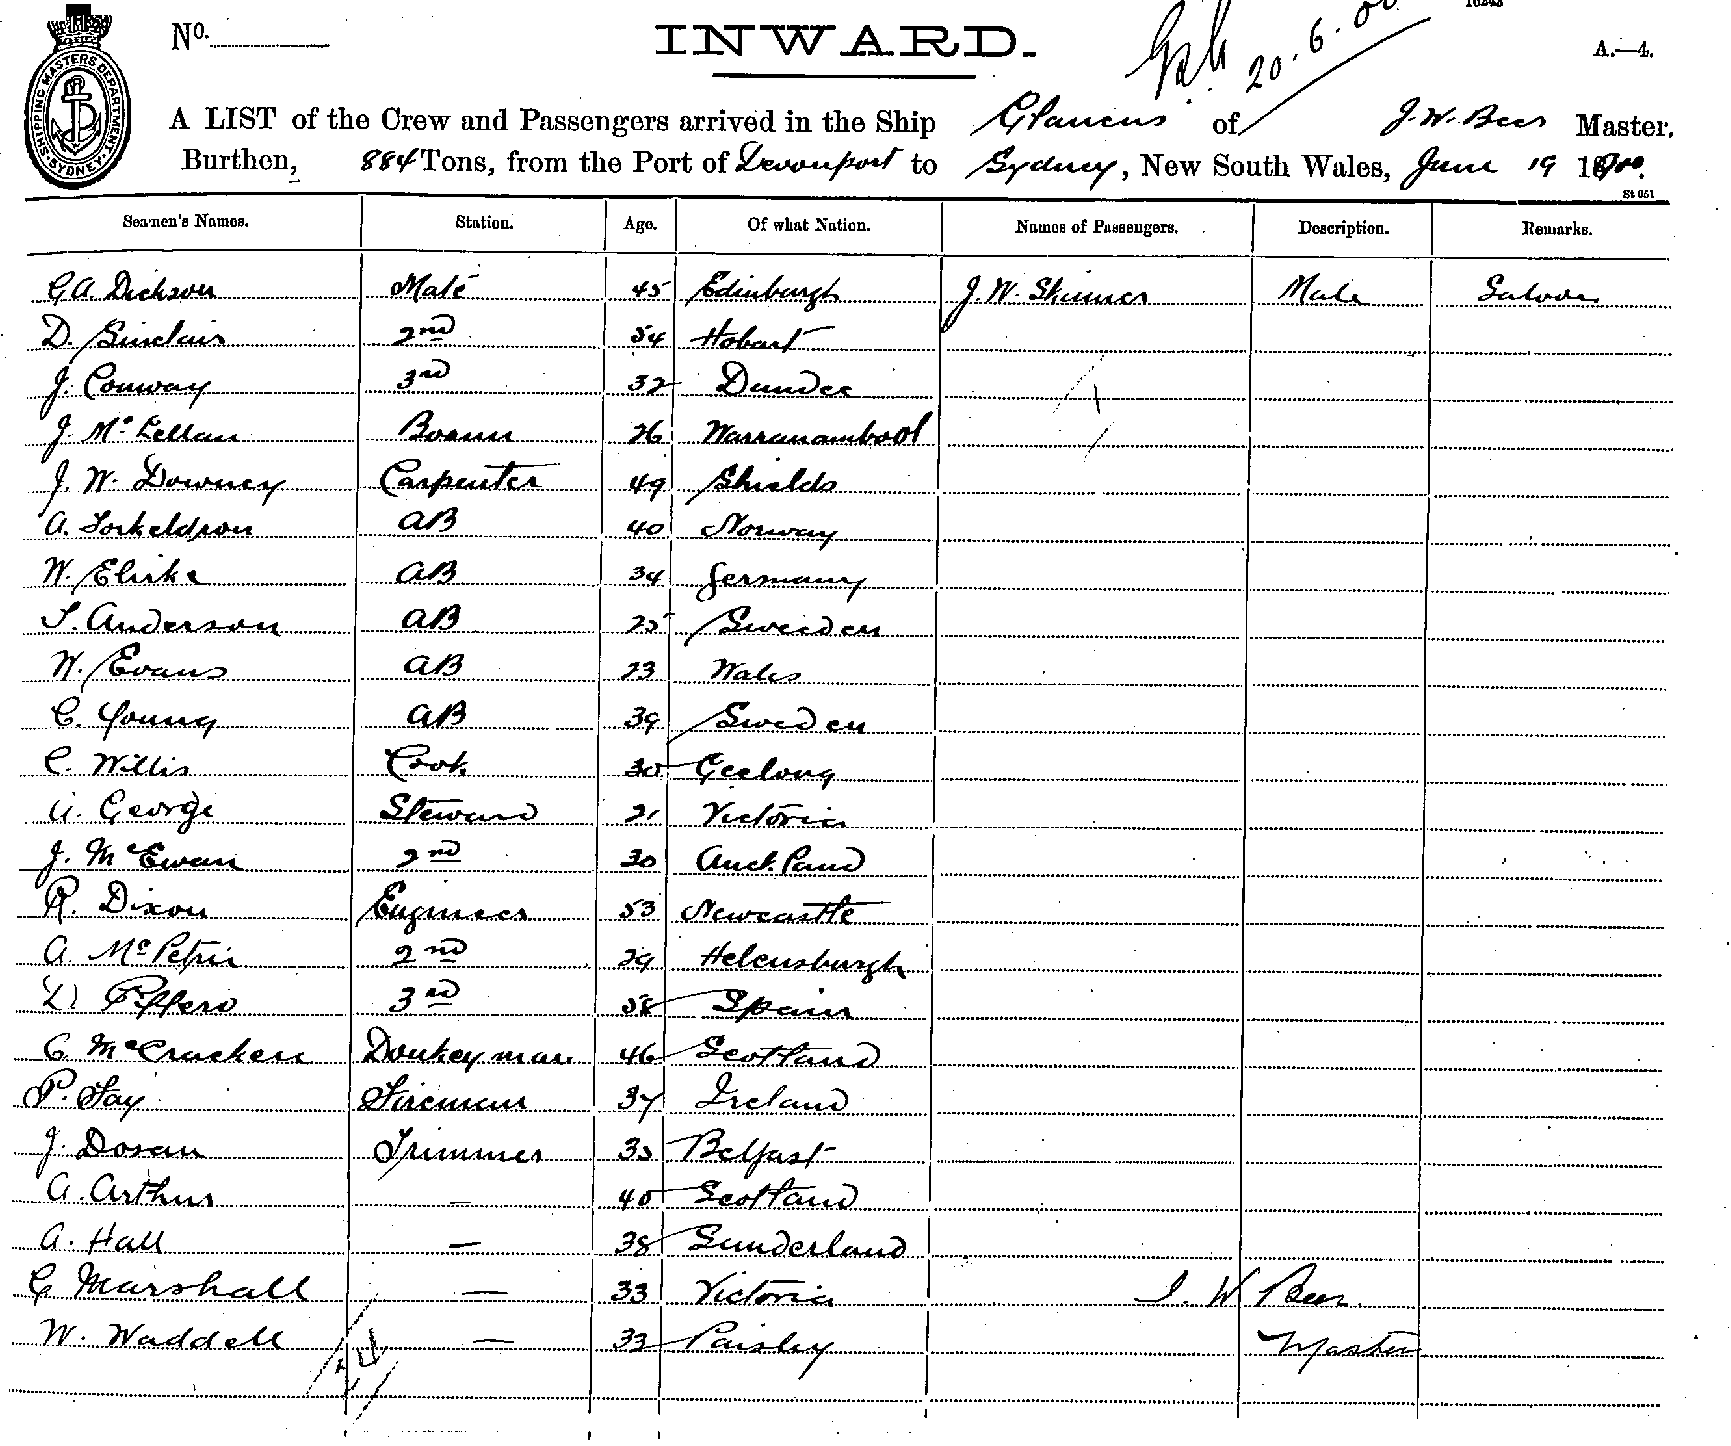 No.
INWARD.
20.6.00
A.—4.
SHIPPING MASTERS DEPARTMENT SYDNEY
A LIST of the Crew and Passengers arrived in the Ship Glaucus of J. W. Beer Master,
Burthen, 884 Tons, from the Port of Devonport to Sydney, New South Wales, June 19 1900.
St 051
Seamen's Names. Station. Age. Of what Nation. Names of Passengers. Description. Remarks.
G A Dickson Mate 45 Edinburgh J. W. Skinner Male Saloon
D. Sinclair 2nd 54 Hobart
J. Conway 3rd 32 Dundee
J. McLellan Bosun 26 Warranambool
J. W. Downey Carpenter 49 Shields
A. Torkeldson AB 40 Norway
W. AB 34 Germany
T. Anderson AB 25 Sweeden
W. Evans AB 23 Wales
C. Young AB 39 Sweden
C. Willis Cook 30 Geelong
A. George Steward 21 Victoria
J. McEwan 2nd 30 Auckland
R. Dixon Engineer 53 Newcastle
A. McPetrie 2nd 29 Helensburgh
D. 3rd 58 Spain
C McCracken Donkeyman 46 Scotland
P. Fay Fireman 37 Ireland
J. Doran Trimmer 35 Belfast
A. Arthur — 40 Scotland
A. Hall — 38 Sunderland
G Marshall — 33 Victoria J. W Beer
W. Waddell — 33 Paisley Master